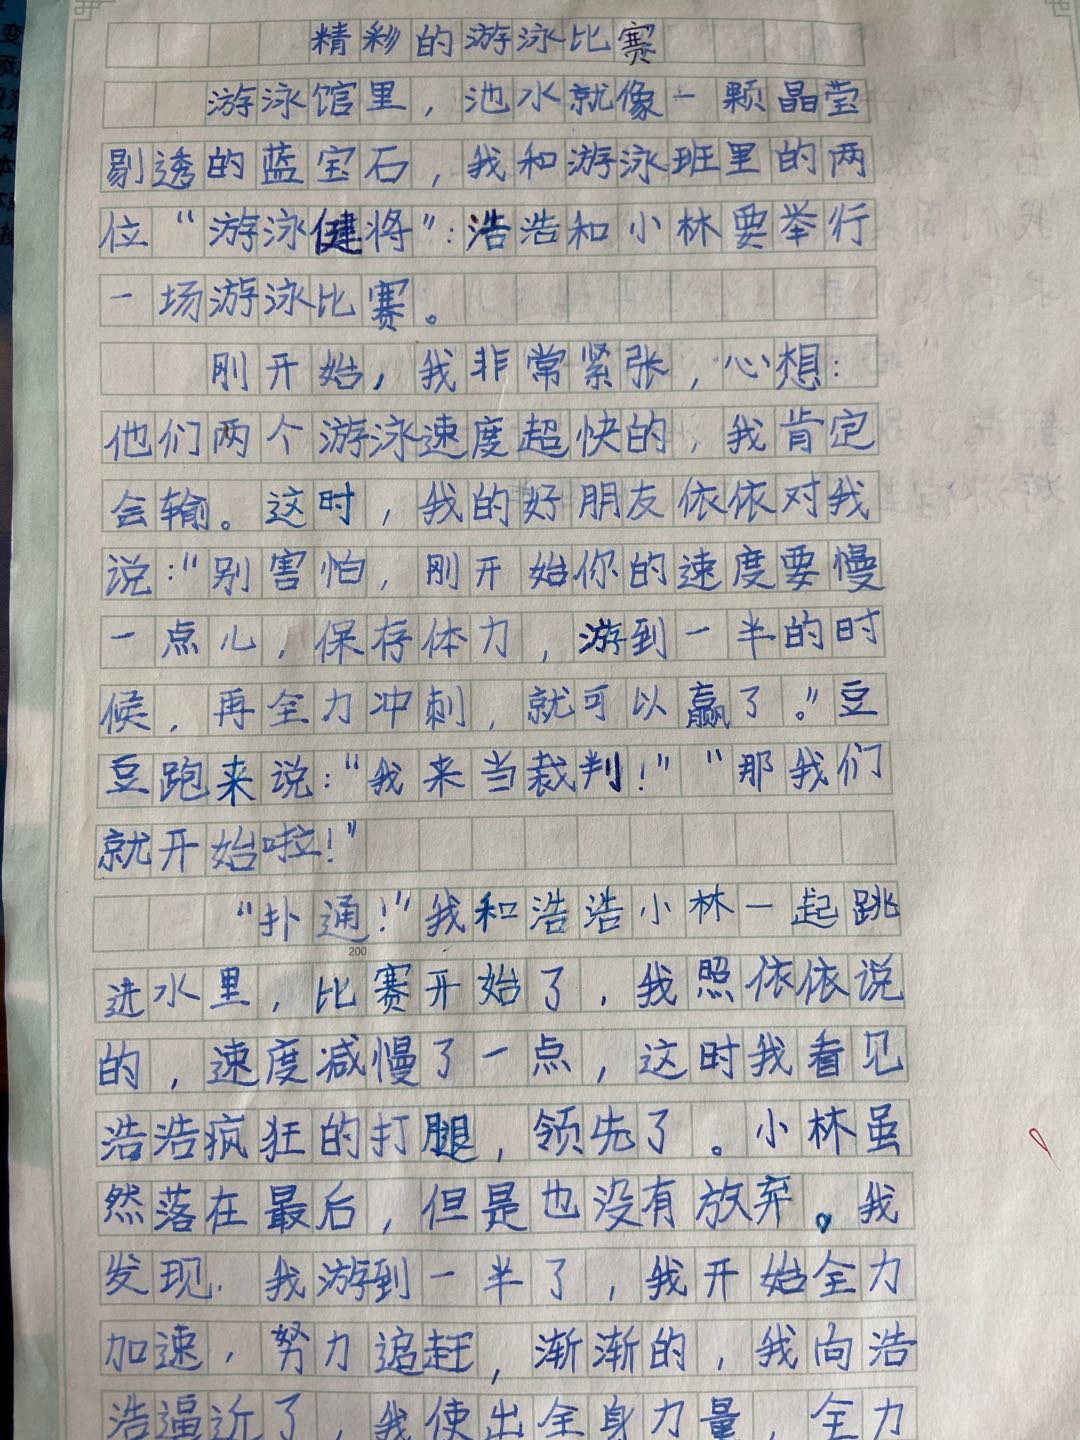 精彩的游泳比赛
游泳馆里，池水就像一颗晶莹
剔透的蓝宝石，我和游泳班里的两
位“游泳健将”：浩浩和小林要举行
一场游泳比赛。
刚开始，我非常紧张，心想：
他们两个游泳速度超快的，我肯定
会输。这时，我的好朋友依依对我
说：“别害怕，刚开始你的速度要慢
一点儿，保存体力，游到一半的时
候，再全力冲刺，就可以赢了。”豆
豆跑来说：“我来当裁判！”“那我们
就开始啦！”
“扑通！”我和浩浩小林一起跳
200
进水里，比赛开始了，我照依依说
的，速度减慢了一点，这时我看见
浩浩疯狂的打腿，领先了。小林虽
然落在最后，但是也没有放弃。我
发现，我游到一半了，我开始全力
加速，努力追赶，渐渐的，我向浩
浩逼近了，我使出全身力量，全力